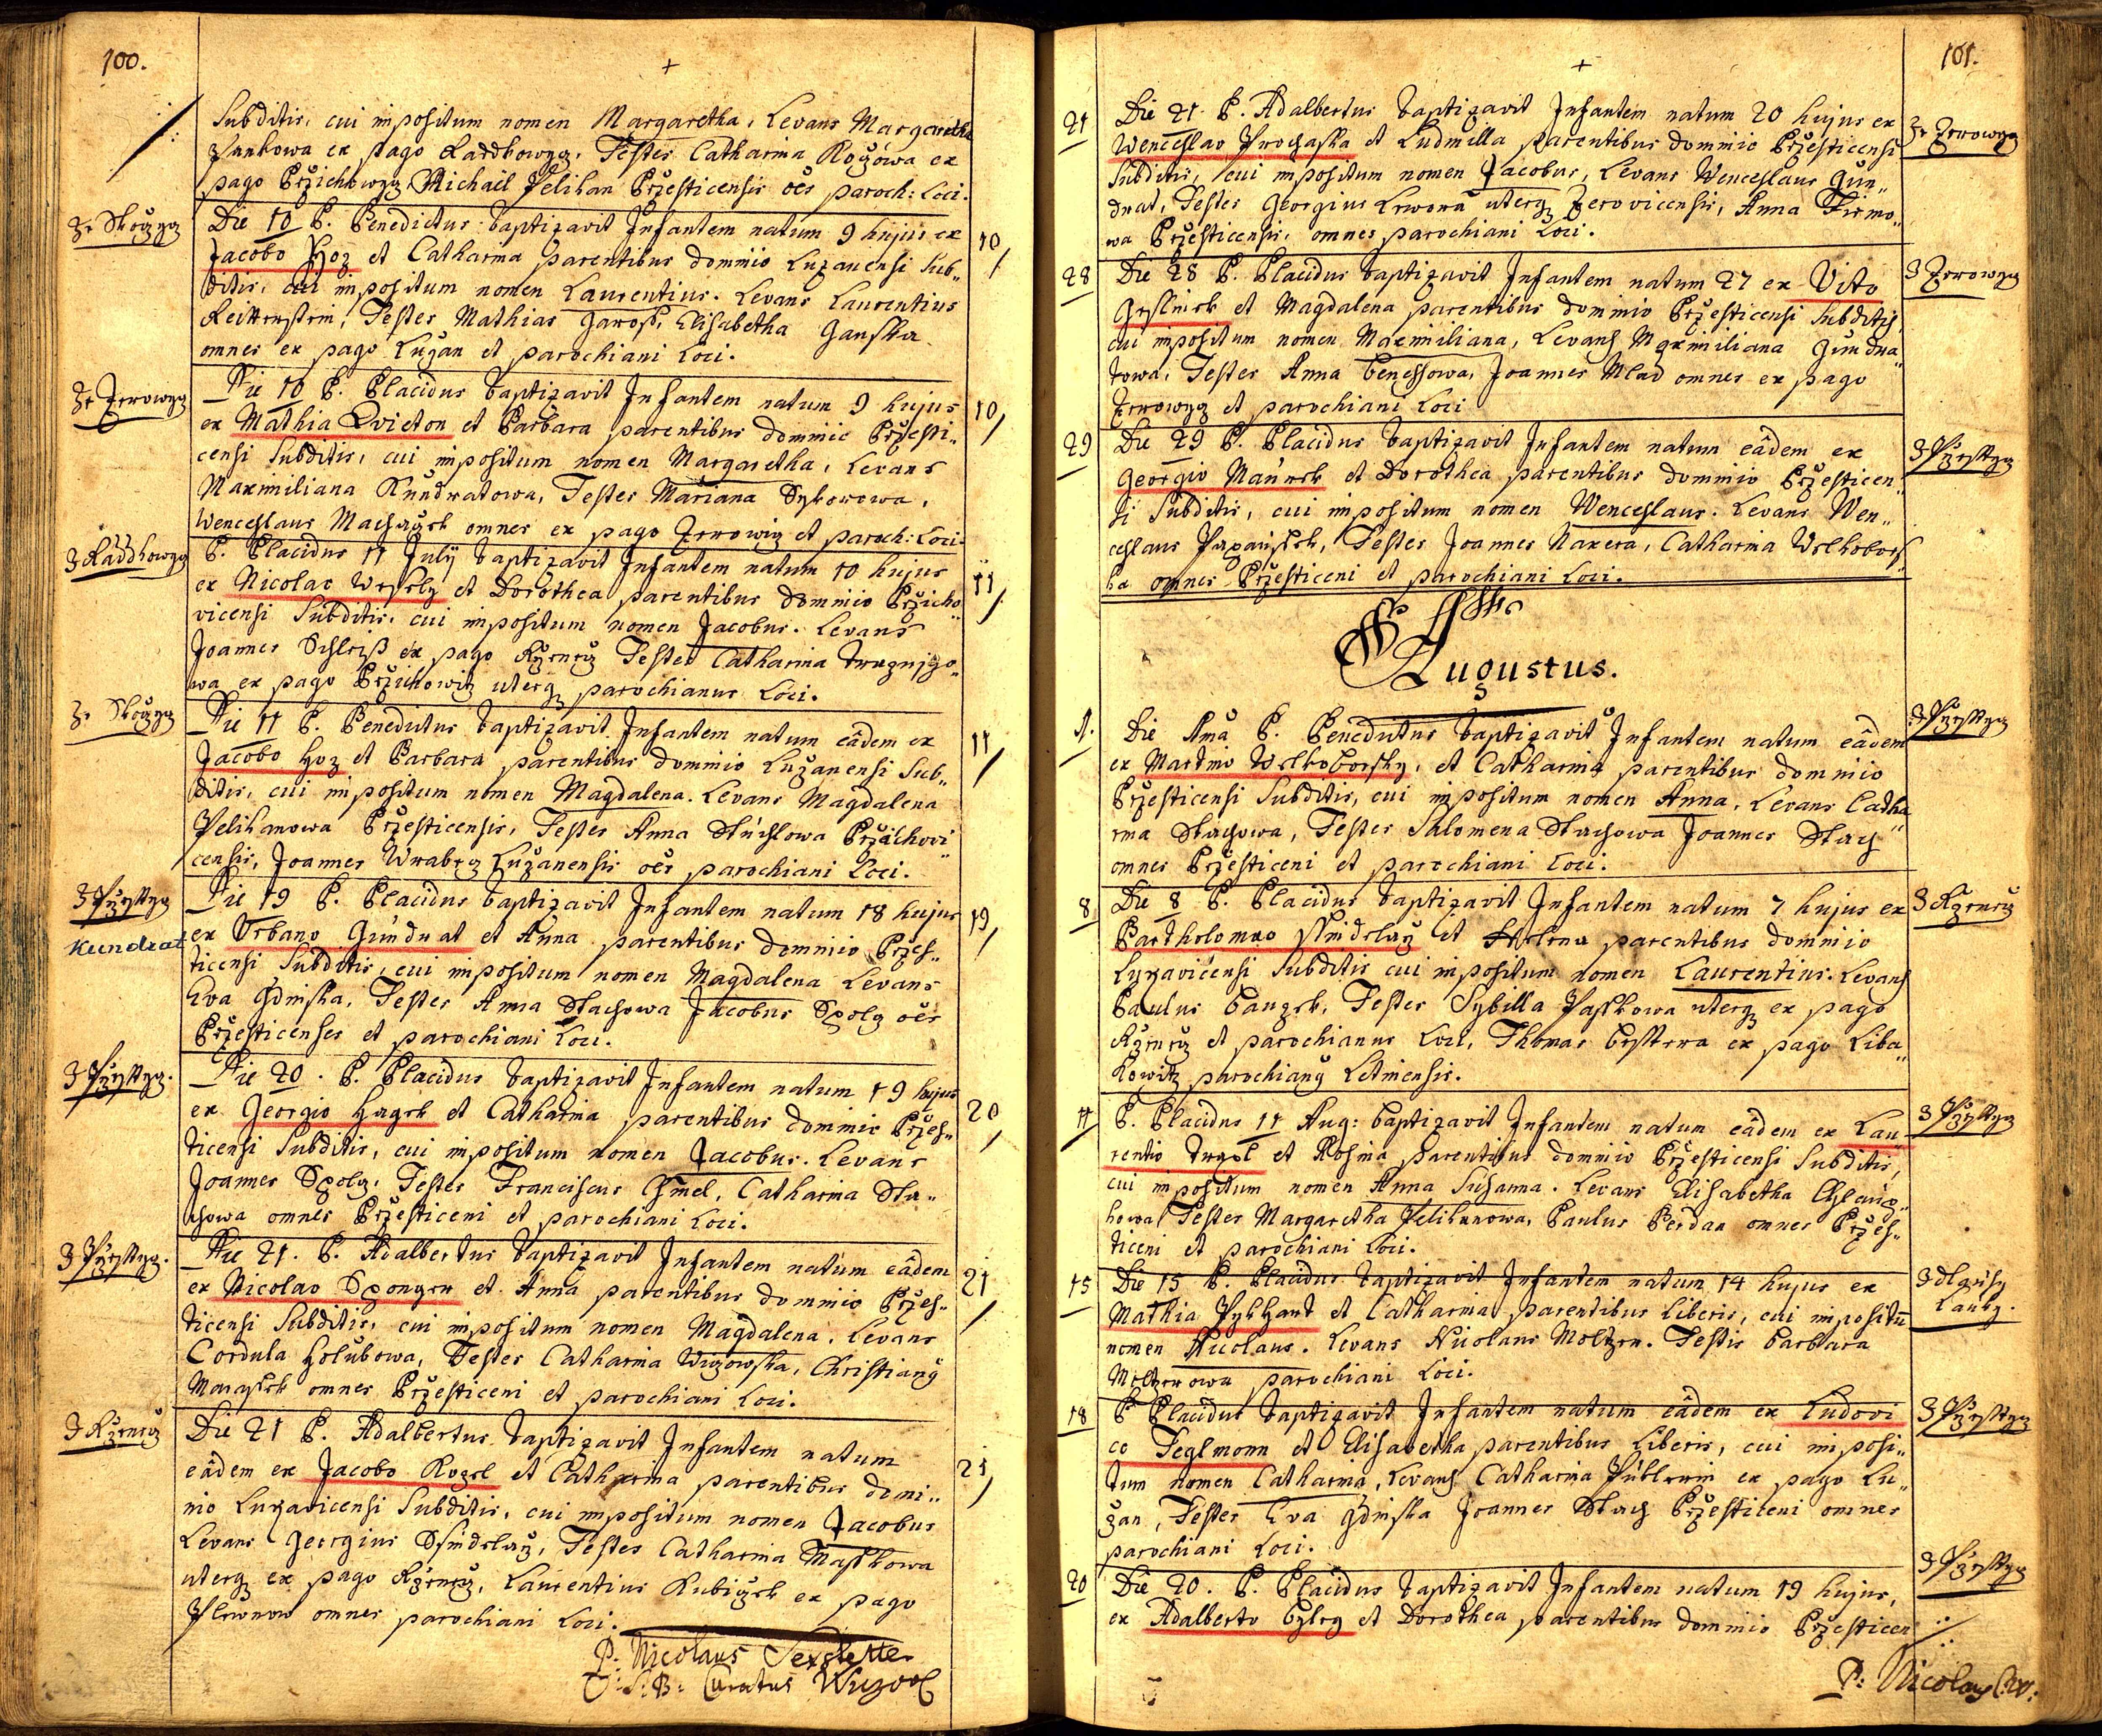 100.
+
Subditis, cui impositum nomen Margaretha, Levans Margaretha
ex pago Raddkowyg. Testes Catharina Rogowa ex
pago Přzichowyg, Michael Pelikan Przesticensis oes paroch: Loci.
Ze Skočzyg
Die 10 P. Benedictus baptizavit Infantem natum 9 hujus ex
10
Jacobo Hoz et Catharina parentibus dominio Luzanensi Sub„
ditis, cui impositum nomen Laurentius. Levans Laurentius
Testes Mathias Jaroß, Elisabetha Ganska
omnes ex pago Luzan et parochiani Loci.
Ze Zerowyg
Die 10 P. Placidus baptizavit Infantem natum 9 hujus
10
ex Mathia Qvieton et Barbara parentibus dominio Przesti„
censi Subditis, cui impositum nomen Margaretha, Levans
Maximiliana Kundratowa, Testes Mariana Sykorowa,
Wenceslaus omnes ex pago Zerowiz et paroch: Loci.
Z Raddkowyg
P. Placidus 11 July baptizavit Infantem natum 10 hujus
11
ex Nicolao Wesely et Dorothea parentibus dominio Przicho„
vicensi Subditis, cui impositum nomen Jacobus. Levans
Joannes Schleiß ex pago Testes Catharina
wa ex pago Przichowitz uterq parochianus Loci.
Ze Skočzyg
Die 11 P. Benedictus baptizavit Infantem natum eâdem ex
11
Jacobo Hoz et Barbara parentibus dominio Luzanensi Sub„
ditis, cui impositum nomen Magdalena. Levans Magdalena
Pelikanowa Przesticensis, Testes Anna Stuchlowa Przichovi„
censis, Joannes Wrabez Luzanensis oes parochiani Loci.
Z Przesstyg
Die 19 P. Placidus baptizavit Infantem natum 18 hujus
19
Kundrat
ex Urbano Gundrat et Anna parentibus dominio Przes„
ticensi Subditis, cui impositum nomen Magdalena Levans
Eva Testes Anna Stachowa Jacobus Spoly oes
Przesticenses et parochiani Loci.
Z Przesstyg.
Die 20. P. Placidus baptizavit Infantem natum 19 hujus
20
ex Georgio Hagek et Catharina parentibus dominio Przes„
ticensi Subditis, cui impositum nomen Jacobus. Levans
Joannes Spoly, Testes Franciscus Chmel, Catharina Sta„
chowa omnes Przesticeni et parochiani Loci.
Z Przesstyg.
Die 21. P. Adalbertus baptizavit Infantem natum eâdem
21
ex Nicolao Spongen et Anna parentibus dominio Przes„
ticensi Subditis, cui impositum nomen Magdalena. Levans
Cordula Holubowa, Testes Catharina Christianq
omnes Przesticeni et parochiani Loci.
Die 21 P. Adalbertus baptizavit Infantem natum
21
eâdem ex Jacobo et Catharina parentibus domi„
nio Lukavicensi Subditis, cui impositum nomen Jacobus
Levans Georgius Testes Catharina Masskowa
uterq ex pago Laurentius Kubiczek ex pago
omnes parochiani Loci.
P: Nicolaus
Curatus
101.
+
21
Die 21. P. Adalbertus baptizavit Infantem natum 20 hujus ex
Ze Zerowyg
Wenceslao Prochaska et Ludmilla parentibus dominio Przesticensi
Subditis, cui impositum nomen Jacobus, Levans Wenceslaus Gun„
drat, Testes Georgius uterq Zerovicensis, Anna
wa Przesticensis, omnes parochiani Loci.
28
Die 28 P. Placidus baptizavit Infantem natum 27 ex Vito
Z Zerowyg
et Magdalena parentibus dominio Przesticensi Subditis
cui impositum nomen Maximiliana, Levans Maximiliana Gundra„
towa, Testes Anna Benessowa, Joannes Mlad omnes ex pago
Zerowyg et parochiani Loci
29
Die 29 P. Placidus baptizavit Infantem natum eâdem ex
Z Przesstyg
Georgio et Dorothea parentibus dominio Przesticen„
si Subditis, cui impositum nomen Wenceslaus. Levans Wen„
ceslaus Testes Joannes Naxera, Catharina Welkobors„
ka omnes Przesticeni et parochiani Loci.
Augustus.
1.
Die 1mâ P. Benedictus baptizavit Infantem natum eâdem
Z Przesstyg
ex Martino Welkoborsky, et Catharina parentibus dominio
Przesticensi Subditis, cui impositum nomen Anna, Levans Catha„
rina Stachowa, Testes Salomena Stachowa Joannes Stach
omnes Przesticeni et parochiani Loci.
8
Die 8 P. Placidus baptizavit Infantem natum 7 hujus ex
Bartholomæo et Helena parentibus dominio
Lukavicensi Subditis cui impositum nomen Laurentius. Levans
Paulus Testes Sybilla Passkowa uterq ex pago
et parochianus Loci, Thomas ex pago Liba„
kowitz parochianq Letinensis.
11
P. Placidus 11 Aug: baptizavit Infantem natum eâdem ex Lau„
Z Przesstyg
rentio et Rosina parentibus dominio Przesticensi Subditis,
cui impositum nomen Anna Susanna. Levans Elisabetha
kowa Testes Margaretha Pelikanowa, Paulus Berdan omnes Przes„
ticeni et parochiani Loci.
15
Die 15 P. Placidus baptizavit Infantem natum 14 hujus ex
Z Dlguhy
Lauky.
Mathia et Catharina parentibus Liberis, cui impositū
nomen Nicolaus. Levans Nicolaus Moltzen. Testis Barbara
Moltzenowa parochiani Loci.
18
P Placidus baptizavit Infantem natum eâdem ex Ludovi„
Z Przesstyg
co Teglmonn et Elisabetha parentibus Liberis, cui imposi„
tum nomen Catharina, Levans Catharina ex pago Lu„
zan, Testes Eva Joannes Stach Przesticeni omnes
parochiani Loci.
20
Die 20. P. Placidus baptizavit Infantem natum 19 hujus,
Z Przesstyg
ex Adalberto et Dorothea parentibus dominio Przesticen
P: Nicolaus